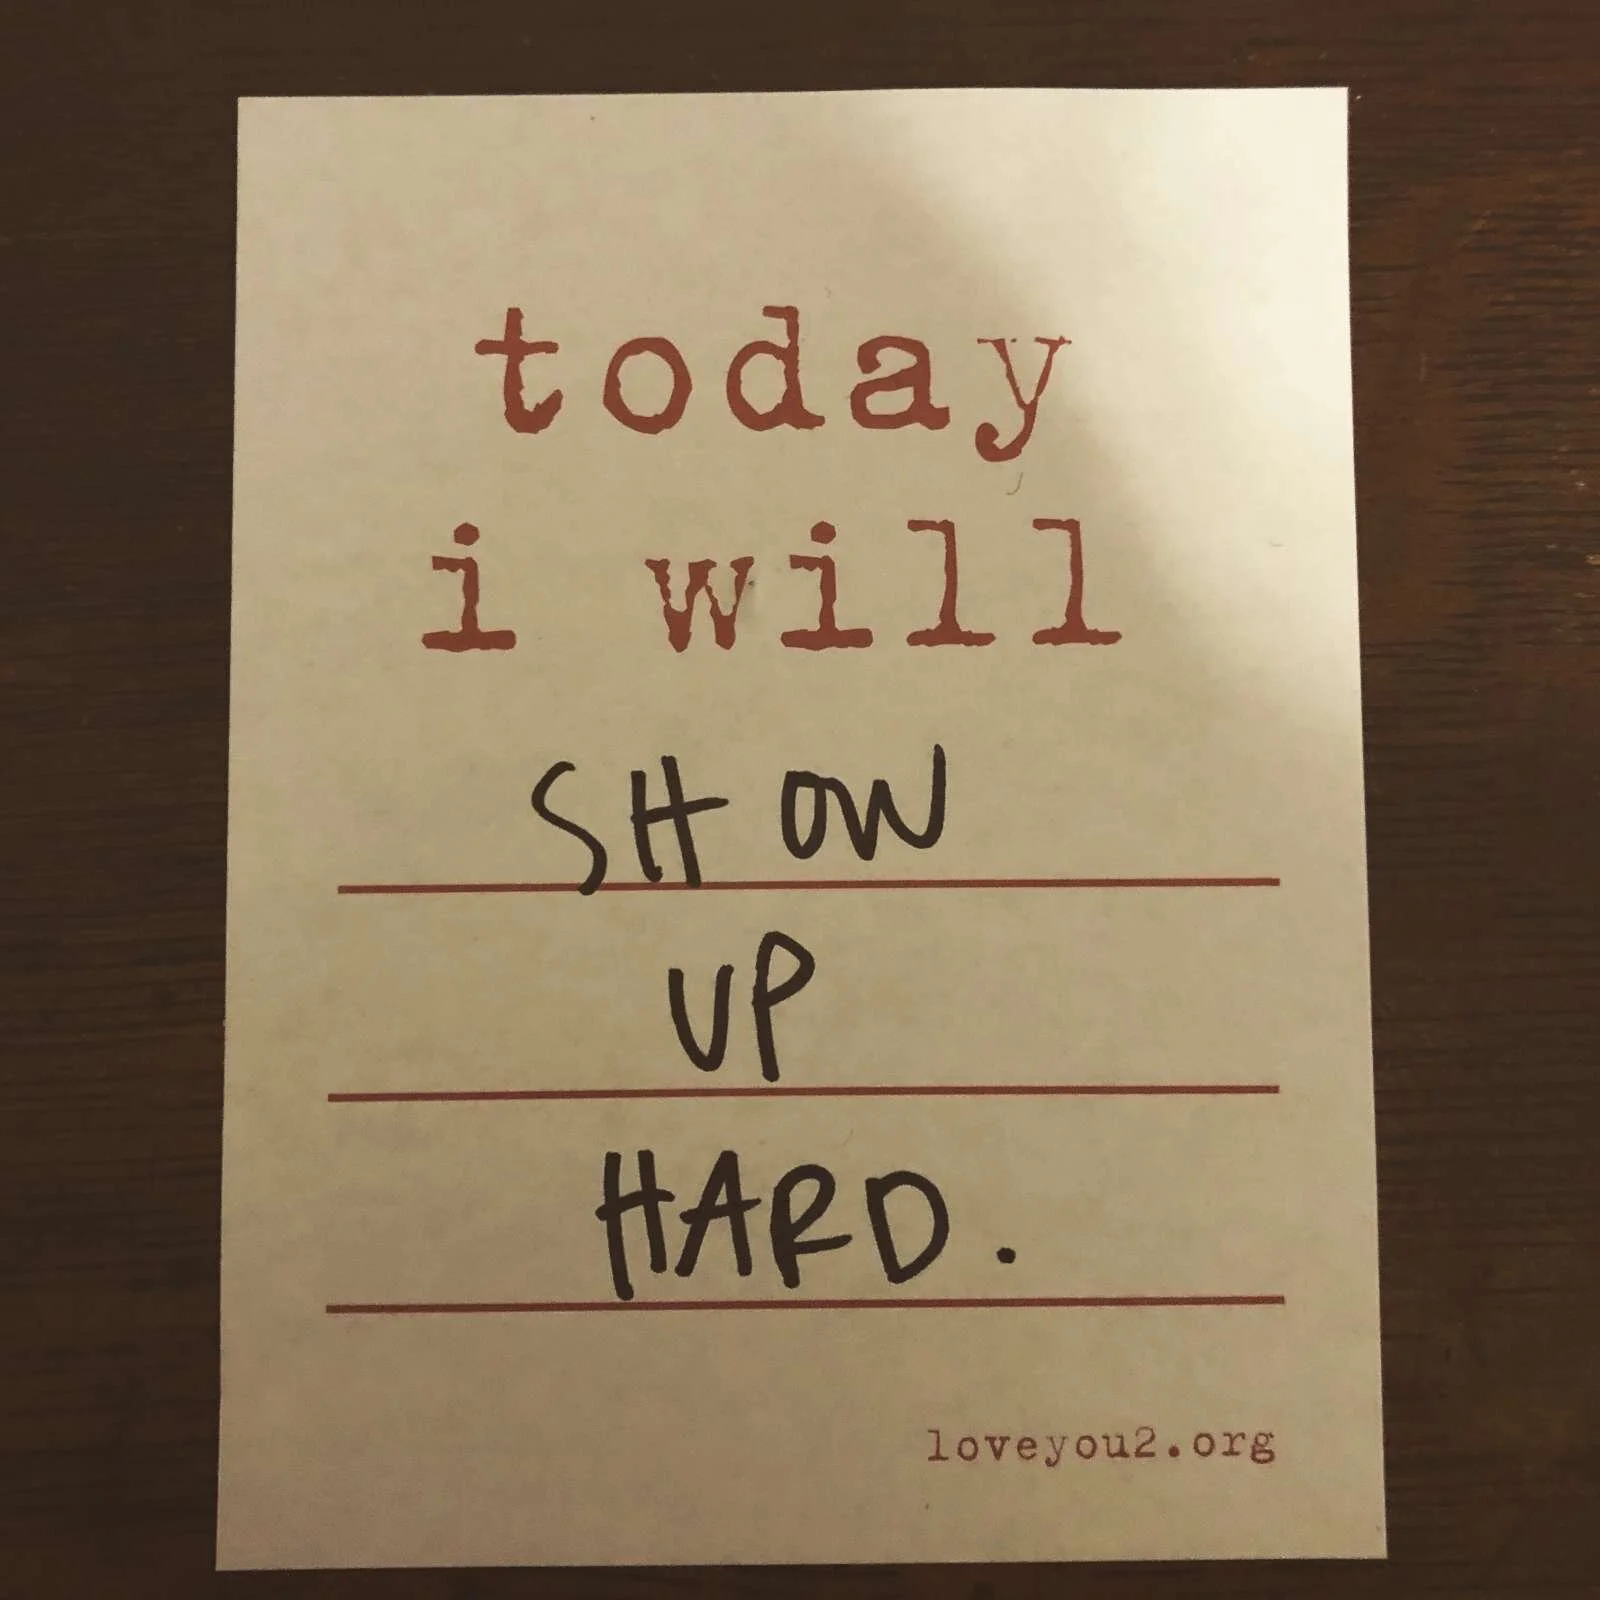 today
i will
SHOW
UP
HARD.
loveyou2.org